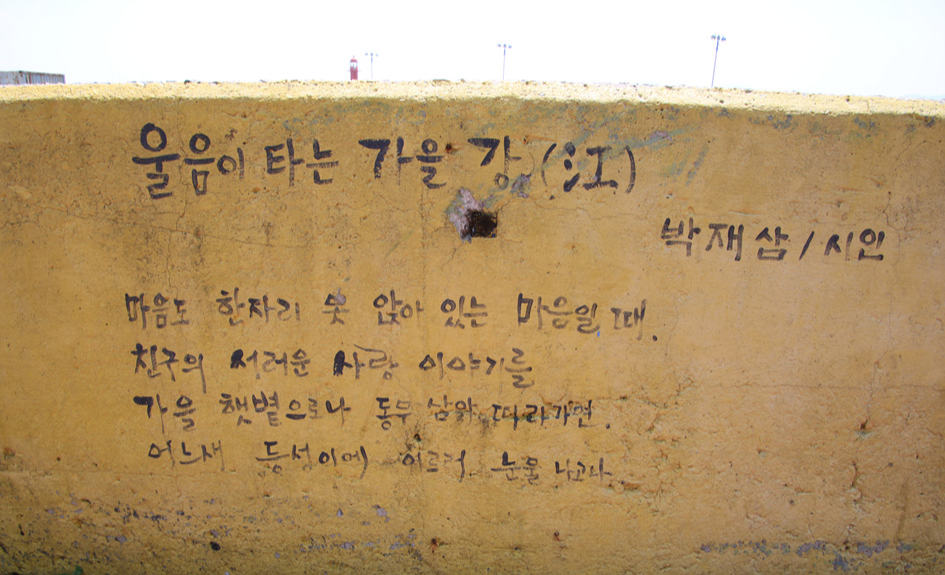 울음이 타는 가을 강(江)
박재삼/시인
마음도 한자리 못 앉아 있는 마음일 때.
친구의 서러운 사랑 이야기를
가을 햇볕으로나 동무 삼아 따라가면.
어느새 등성이에 이르러 눈물 나고나